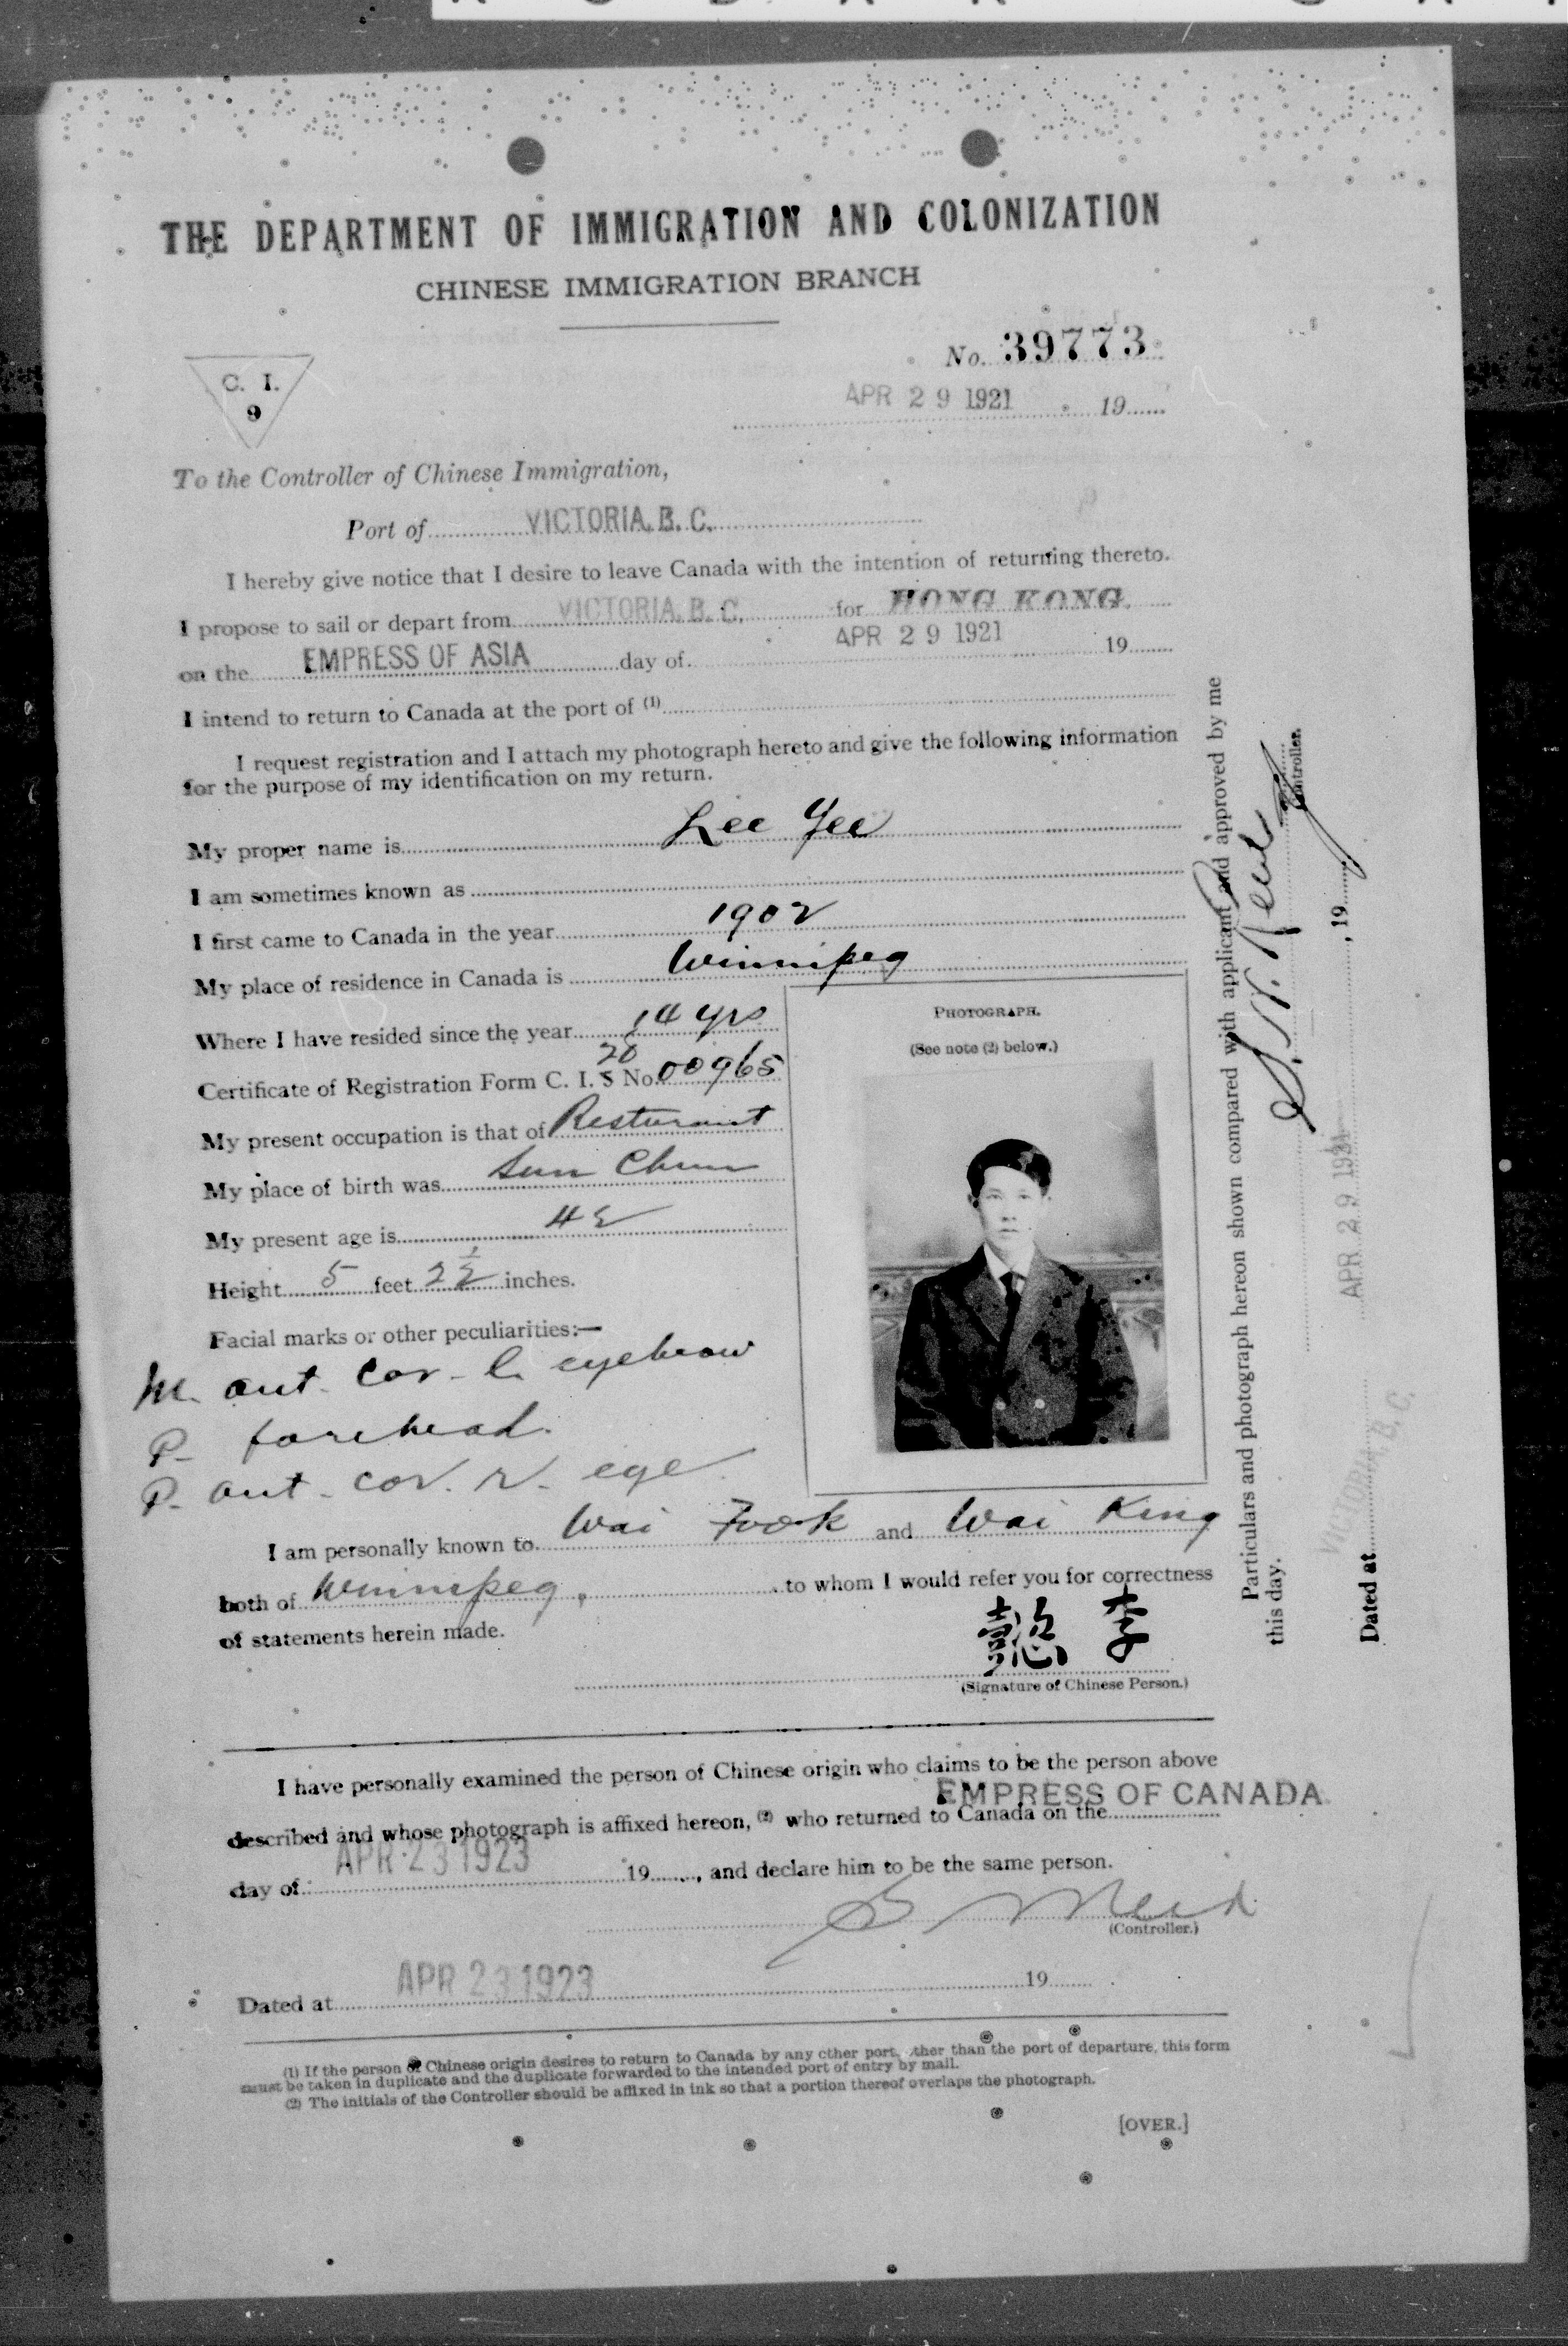 THE DEPARTMENT OF IMMIGRATION AND COLONIZATION
CHINESE IMMIGRATION BRANCH
No. 39773
C. I.
9
APR 29 1921 19
To the Controller of Chinese Immigration,
Port of VICTORIA, B. C.
I hereby give notice that I desire to leave Canada with the intention of returning thereto.
I propose to sail or depart from VICTORIA, B. C. for HONG KONG.
on the EMPRESS OF ASIA day of APR 29 1921 19
I intend to return to Canada at the port of (1)
I request registration and I attach my photograph hereto and give the following information
for the purpose of my identification on my return.
My proper name is Lee Yee
I am sometimes known as
I first came to Canada in the year 1902
My place of residence in Canada is Winnipeg
Where I have resided since the year 14 yrs
Certificate of Registration Form C. I. 5 No. 00965
28
My present occupation is that of Resturant
My place of birth was Sun Chun
My present age is 42
Height 5 feet 2 1/2 inches.
Facial marks or other peculiarities:—
M. out. cor. l. eyebrow
P. forehead.
P. out. cor. r. eye
PHOTOGRAPH.
(See note (2) below.)
I am personally known to Wai Fook and Wai King
both of Winnipeg, to whom I would refer you for correctness
of statements herein made.
李
(Signature of Chinese Person.)
I have personally examined the person of Chinese origin who claims to be the person above
described and whose photograph is affixed hereon, (2) who returned to Canada on the EMPRESS OF CANADA
day of APR 23 1923 19, and declare him to be the same person.
(Controller.)
Dated at APR 23 1923 19
(1) If the person of Chinese origin desires to return to Canada by any other port, other than the port of departure, this form
must be taken in duplicate and the duplicate forwarded to the intended port of entry by mail.
(2) The initials of the Controller should be affixed in ink so that a portion thereof overlaps the photograph.
[OVER.]
Particulars and photograph hereon shown compared with applicant and approved by me
this day.
Controller.
APR 29 1921
Dated at VICTORIA, B. C., 19